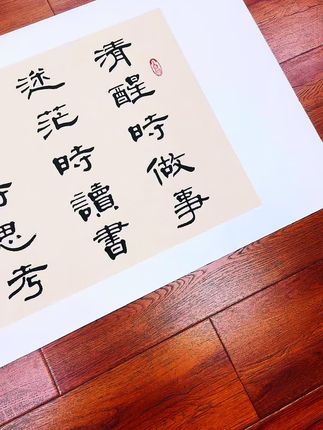 清醒時做事
迷茫時讀書
時思考